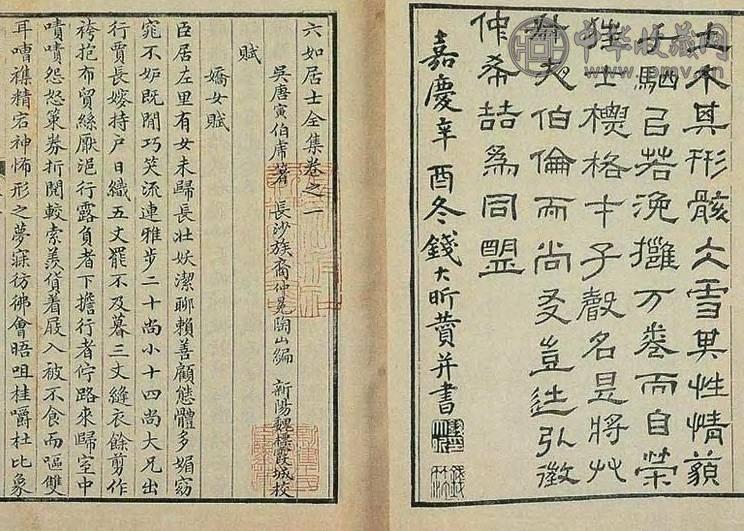 土木其形骸仌雪其性情藐
千駟㠯若浼擁万卷而自榮
狂士標格才子聲名是將
伯倫而尚友豈徵
仲希喆爲同盟
嘉慶辛酉冬錢大昕贊并書
六如居士全集卷之一
吳唐寅伯虎著 長沙族裔仲冕陶山編 新陽魏標霞城校
賦
嬌女賦
臣居左里有女未歸長壯妖潔聊賴善顧態體多媚窈
窕不妒既閒巧笑流連雅步二十尚小十四尚大兄出
行賈長嫂持戶日織五丈罷不及暮三丈縫衣餘剪作
袴抱布貿絲厭浥行露負者下擔行者佇路來歸室中
嘖嘖怨怒策券折閱較索羨貨着屐入被不食而嘔雙
耳嘈襍精宕神怖形之夢寐彷彿會晤咀桂嚼杜比象
中华收藏网